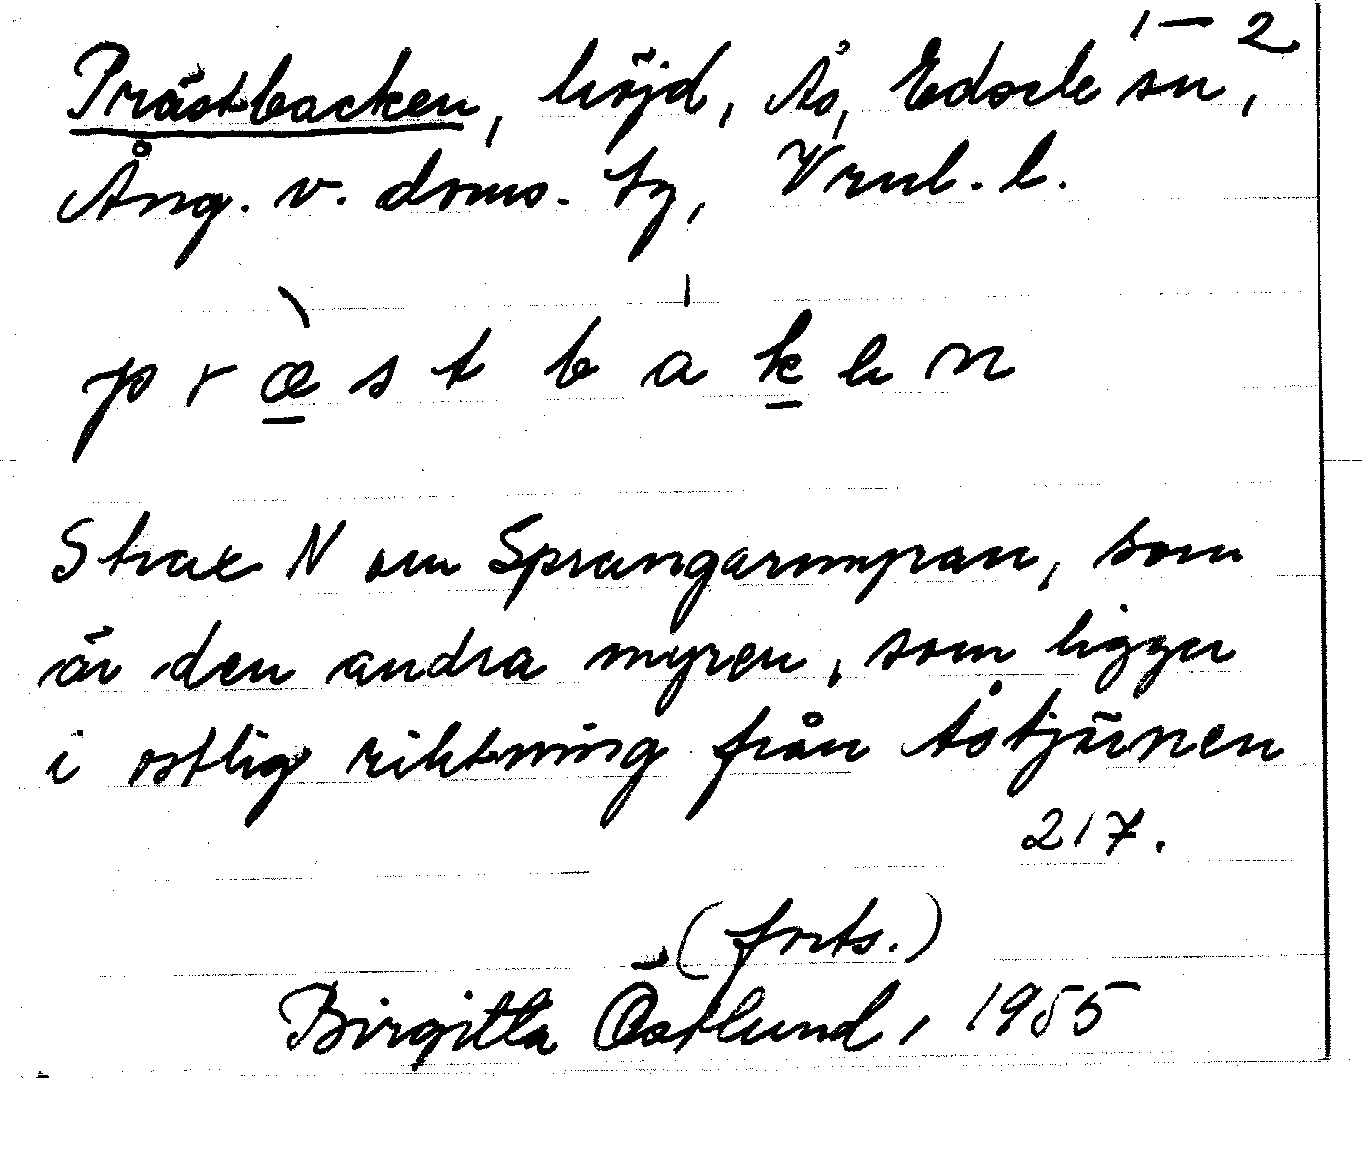 1–2
Prästbacken, höjd, Ås, Edsele sn,
Ång. v. doms. tg, Vrnl. l.
p r æ s t b a k e n
Strax N om Sprangarmyran, som
är den andra myren, som ligger
i ostlig riktning från Åstjärnen
217.
(forts.)
Birgitta Östlund, 1955